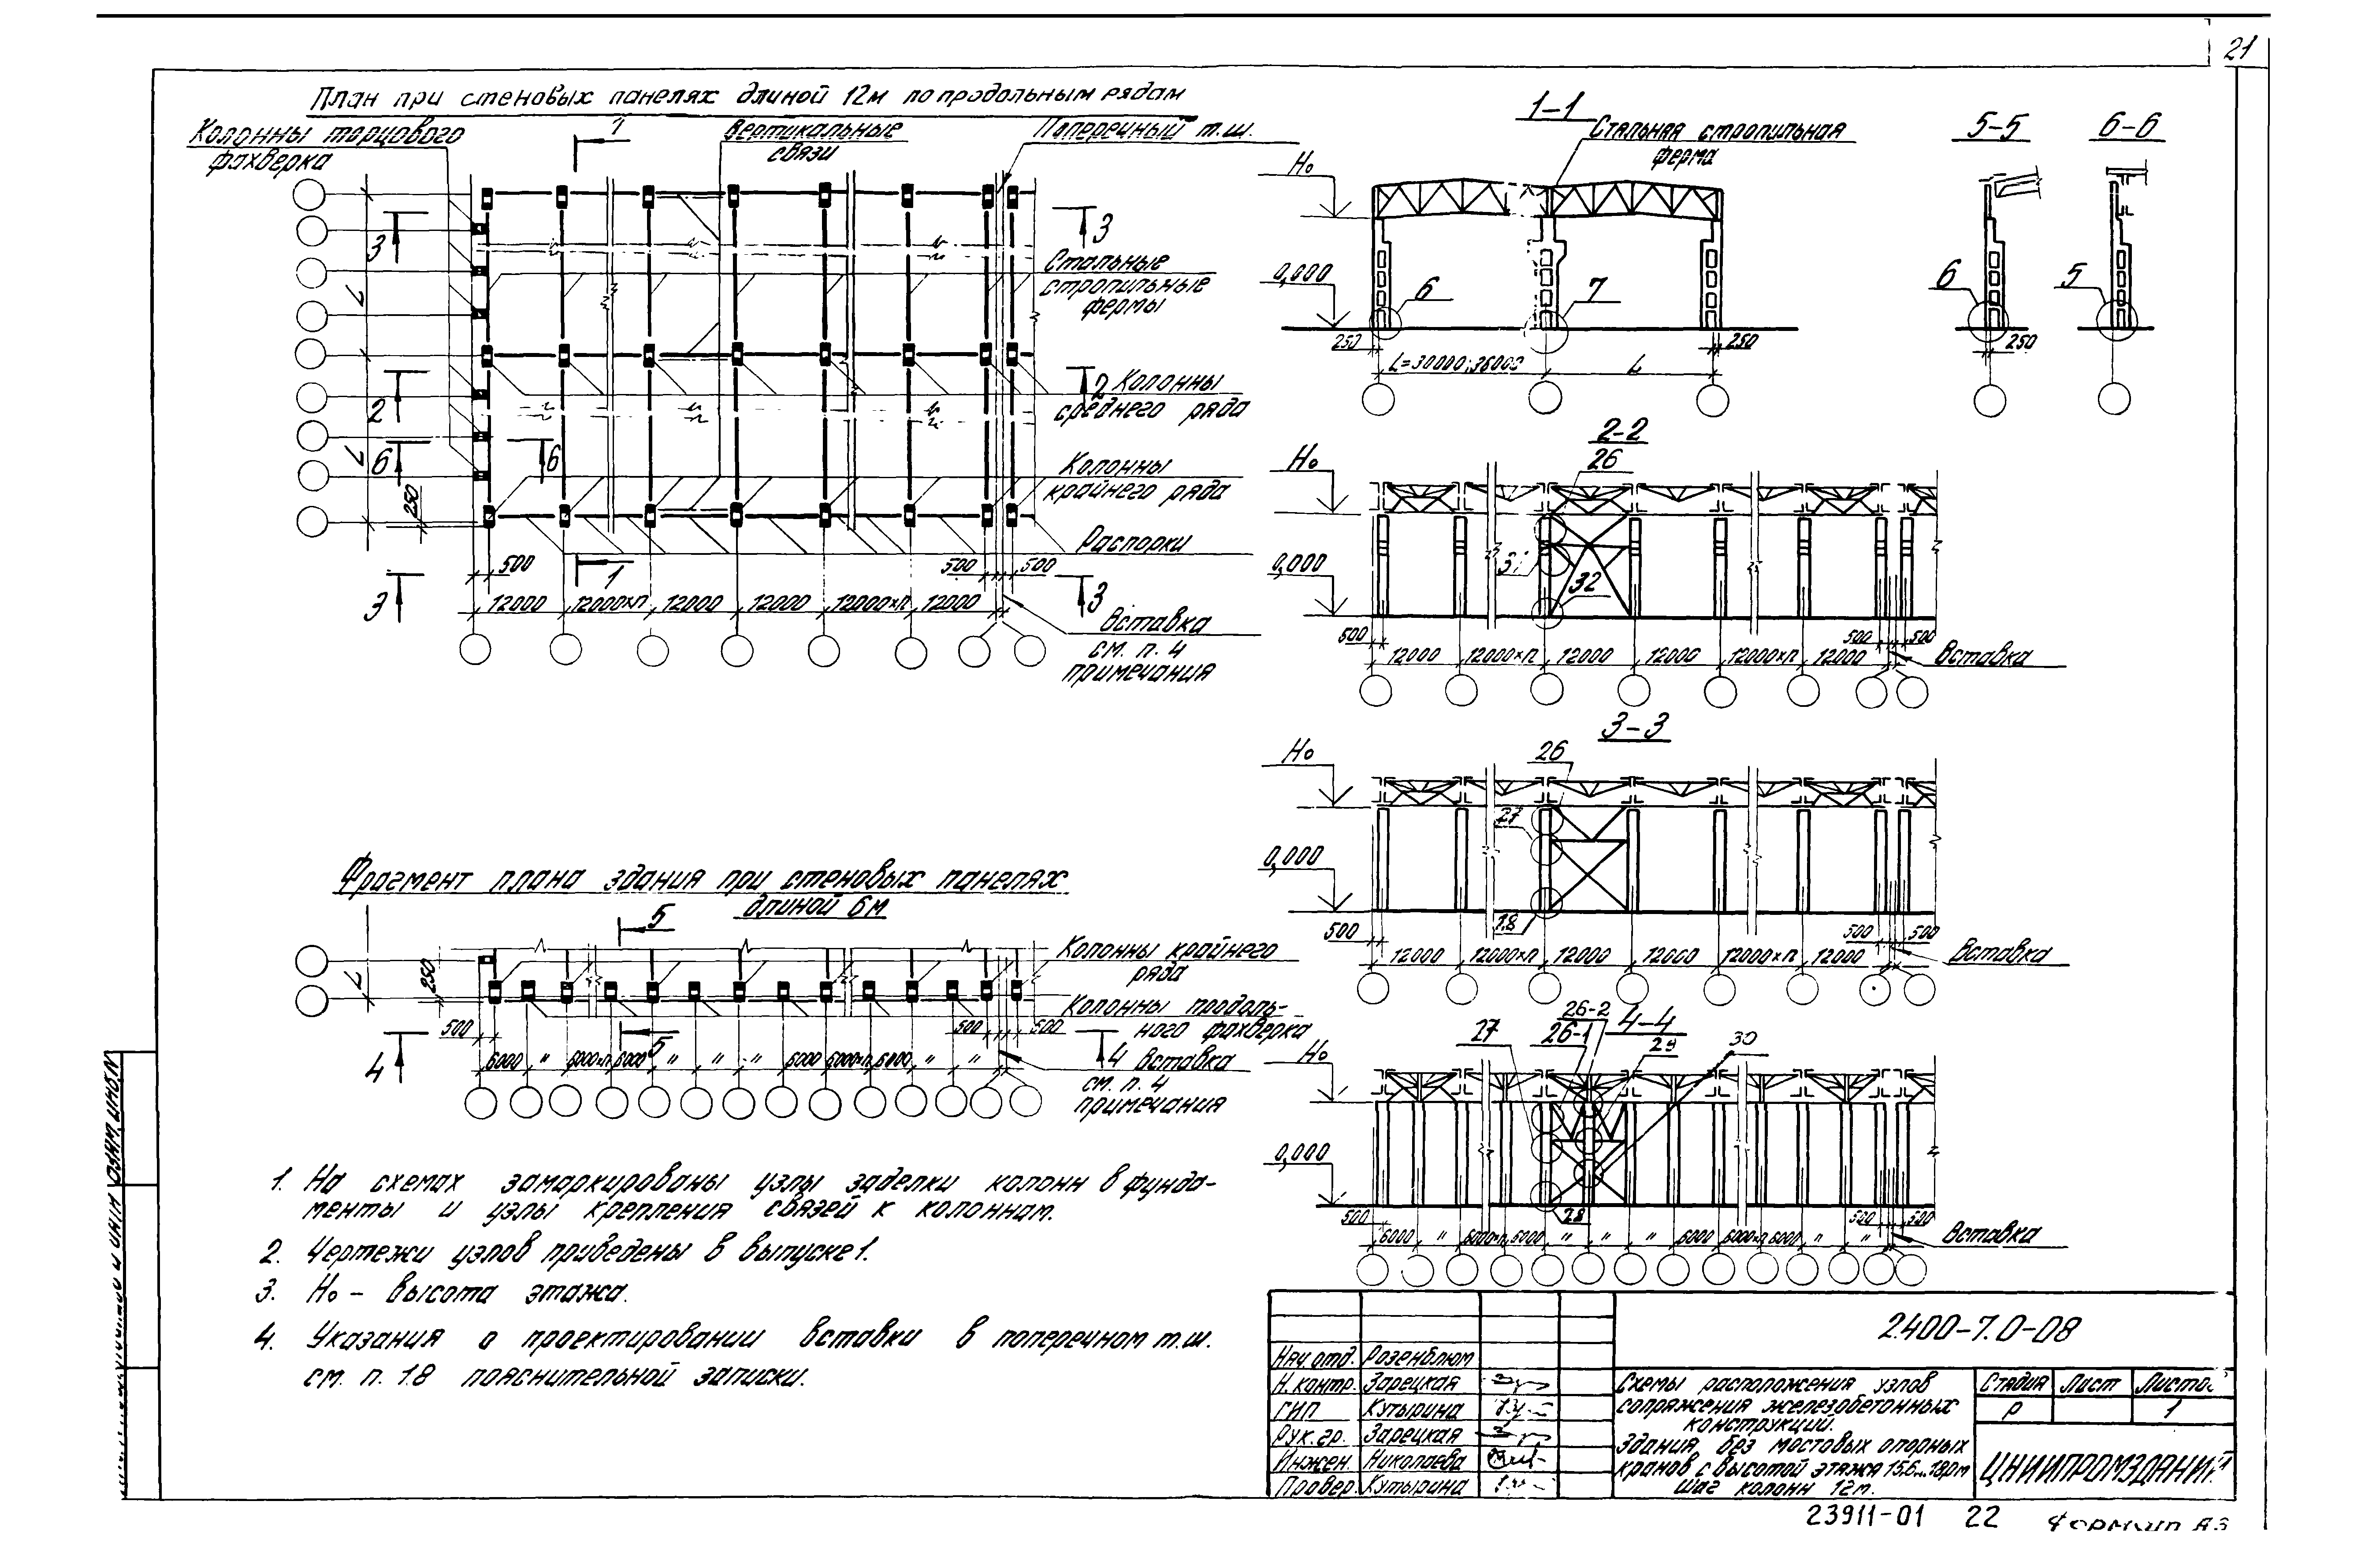 21
План при стеновых панелях длиной 12м по продольным рядам
Колонны торцового
фахверка
1
Вертикальные
связи
Поперечный т.ш.
3
3
Стальные
стропильные
фермы
L
2
2
Колонны
среднего ряда
L
6
6
Колонны
крайнего ряда
250
Распорки
500
1
500
500
3
3
12000
12000×п
12000
12000
12000×п
12000
Вставка
см. п. 4
примечания
Фрагмент плана здания при стеновых панелях
длиной 6м
5
Колонны крайнего
ряда
L
250
Колонны продоль-
ного фахверка
500
5
500
500
4
4
6000
"
6000×п
6000
"
"
"
6000
6000×п
6000
"
"
Вставка
см. п. 4
примечания
1. На схемах замаркированы узлы заделки колонн в фунда-
менты и узлы крепления связей к колоннам.
2. Чертежи узлов приведены в выпуске 1.
3. Н₀ – высота этажа.
4. Указания о проектировании вставки в поперечном т.ш.
см. п. 1.8 пояснительной записки.
1-1
Стальная стропильная
ферма
Н₀
0,000
6
7
250
250
L=30000;36000
L
5-5
6
250
6-6
5
2-2
26
Н₀
0,000
32
500
500
500
12000
12000×п
12000
12000
12000×п
12000
Вставка
3-3
26
Н₀
27
0,000
28
500
500
500
12000
12000×п
12000
12000
12000×п
12000
Вставка
4-4
27
26-1
26-2
29
30
Н₀
0,000
28
500
500
500
6000
"
6000×п
6000
"
"
"
6000
6000×п
6000
"
"
Вставка
2.400-7.0-08
Нач. отд. Розенблюм
Н. контр. Зарецкая
ГИП Кутырина
Рук. гр. Зарецкая
Инжен. Николаева
Провер. Кутырина
Схемы расположения узлов
сопряжения железобетонных
конструкций.
Здания без мостовых опорных
кранов с высотой этажа 15,6...18,0м
Шаг колонн 12м.
Стадия Лист Листов
Р 1
ЦНИИПРОМЗДАНИЙ
23911-01 22 Формат А3